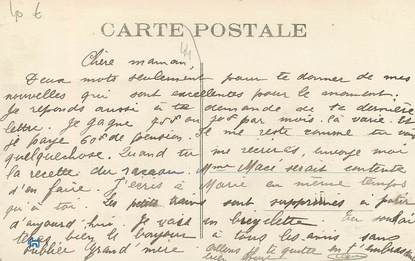 40 €
CARTE POSTALE
Chère maman,
Deux mots seulement pour te donner de mes
nouvelles qui sont excellentes pour le moment.
Je réponds aussi à ta demande de ta dernière
lettre. Je gagne par mois. là varie. Et
je paye 60f de pension. Il me reste comme tu vois
quelquechose. Quand tu me recrires, envoie moi
la recette du Mme Macé serait contente
d'en faire. J'écris à Marie en même temps
qu'à toi. Les petits trains sont supprimés à partir
d'aujourd'hui. Je vais en bicyclette.
bien le bonjour à tous les amis sans
oublier Grand'mère Je te quitte en t'embrassant
bien